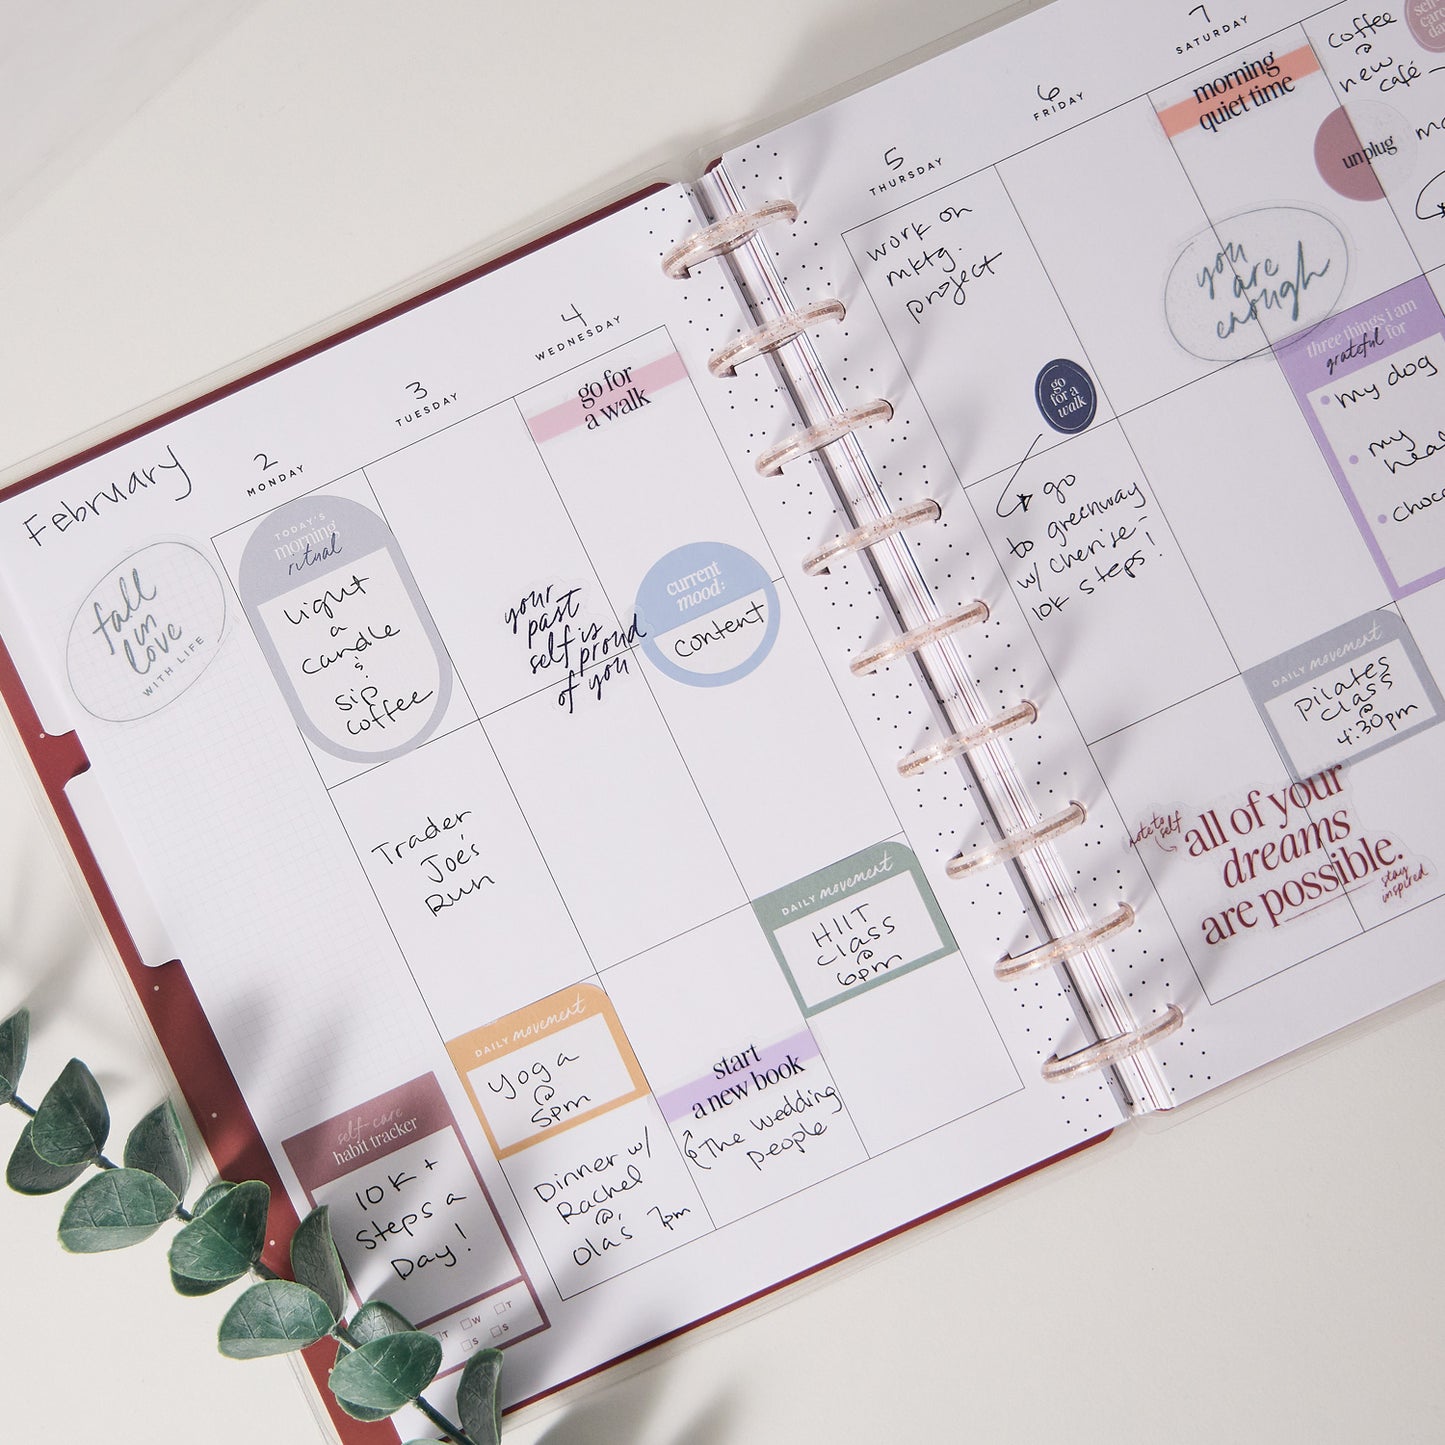 February
fall
in
love
WITH LIFE
self-care
habit tracker
10K +
Steps a
Day!
T W T
S S
2
MONDAY
TODAY'S
morning
ritual
Light
a
candle
&
sip
coffee
Trader
Joe's
Run
DAILY movement
Yoga
@
5pm
Dinner w/
Rachel
@
Ola's 7pm
3
TUESDAY
your
past
self is
proud
of you
start
a new book
The Wedding
People
4
WEDNESDAY
go for
a walk
current
mood:
content
DAILY movement
HIIT
class
@
6pm
5
THURSDAY
work on
mktg.
project
go
for a
walk
go
to greenway
w/ cherise-
10k steps!
note to
self
all of your
dreams
are possible.
stay
inspired
6
FRIDAY
DAILY movement
Pilates
class
@
4:30pm
7
SATURDAY
morning
quiet time
you
are
enough
three things i am
grateful for
my dog
my
choc
coffee
@
new
café
unplug